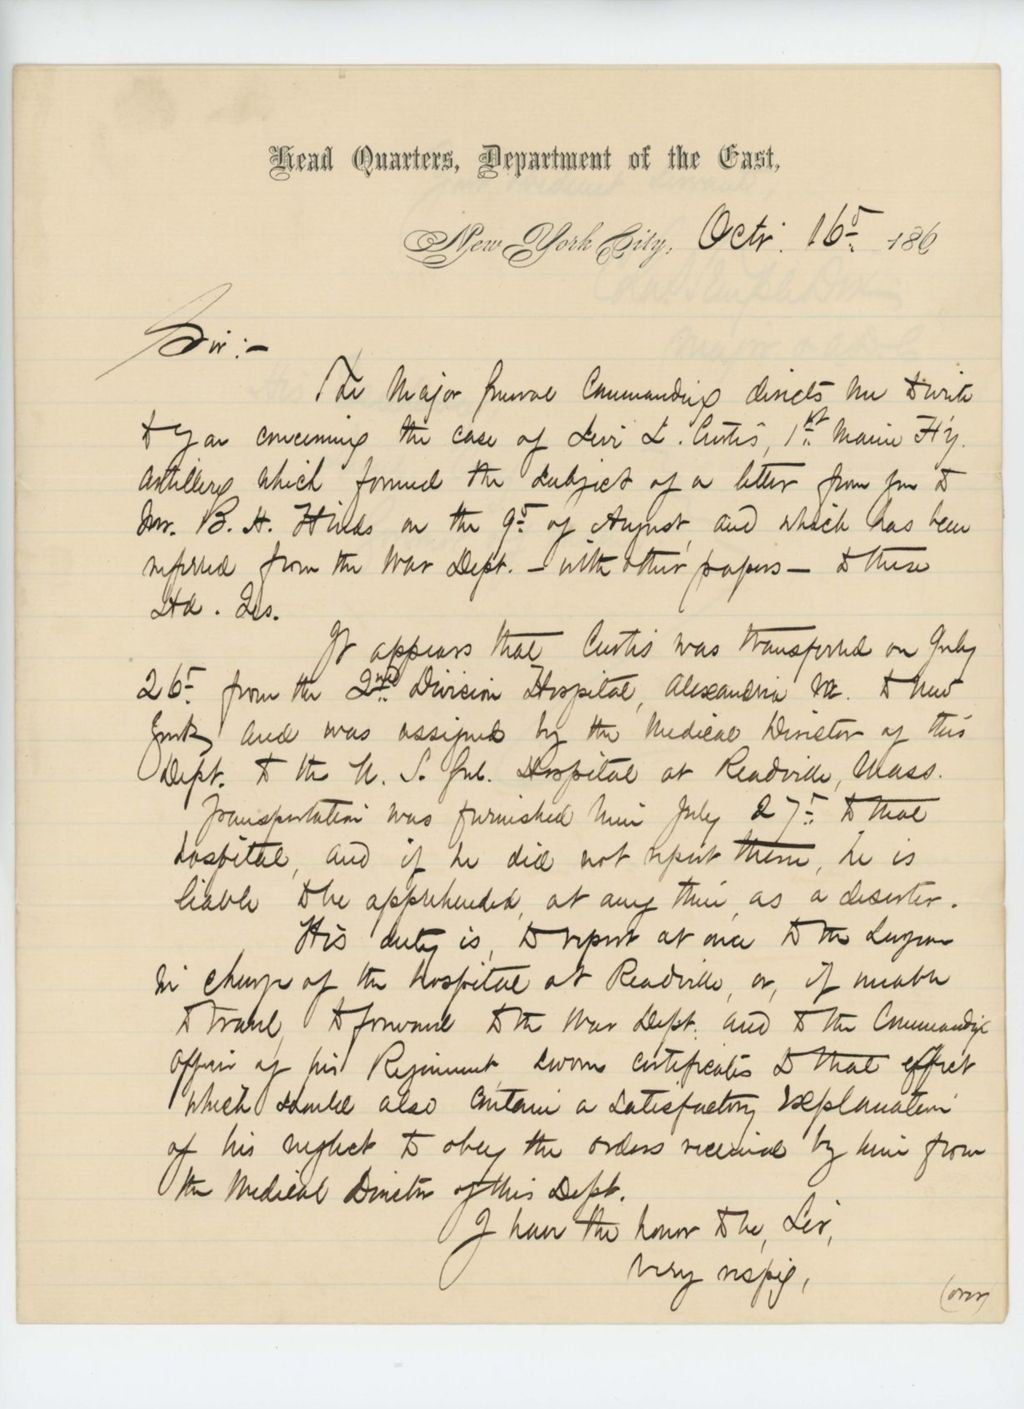 Head Quarters, Department of the East,
New York City, Octr. 16th 186
Sir:-
The Major General Commanding directs me to write
to you concerning the case of Levi L. Curtis, 1st Maine H'y.
Artillery which formed the subject of a letter from you to
Mr. B. H. Hinds on the 9th of August, and which has been
referred from the War Dept. - with other papers - to these
Hd. Qrs.
It appears that Curtis was transferred on July
26th from the 2nd Division Hospital, Alexandria Va. to New
York, and was assigned by the Medical Director of this
Dept. to the U. S. Genl. Hospital at Readville, Mass.
Transportation was furnished him July 27th to that
hospital, and if he did not report there, he is
liable to be apprehended, at any time, as a deserter.
His duty is, to report at once to the Surgeon
in charge of the hospital at Readville, or, if unable
to travel, to forward to the War Dept. and to the Commanding
Officer of his Regiment, sworn certificates to that effect
which should also contain a satisfactory explanation
of his neglect to obey the orders received by him from
the Medical Director of this Dept.
I have the honor to be, Sir,
Very respy,
(over)